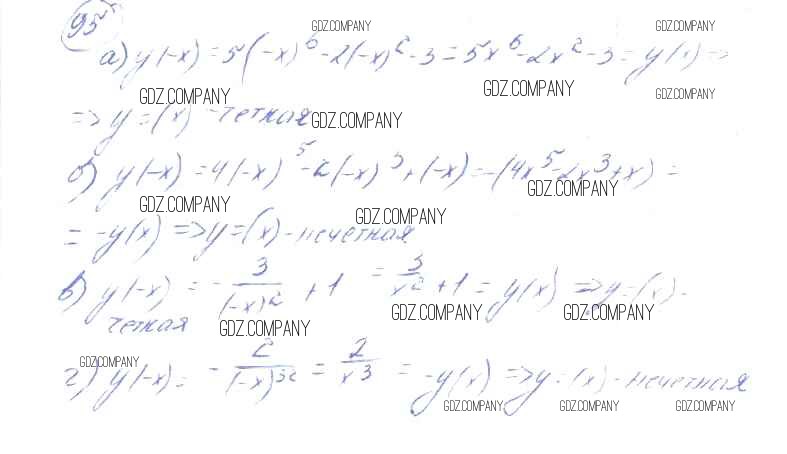 95
GDZ.COMPANY GDZ.COMPANY
а) y(-x) = 5(-x)^6 - 2(-x)^2 - 3 = 5x^6 - 2x^2 - 3 = y(x) =>
GDZ.COMPANY GDZ.COMPANY GDZ.COMPANY
=> y = (x) - четная GDZ.COMPANY
б) y(-x) = 4(-x)^5 - 2(-x)^3 + (-x) = -(4x^5 - 2x^3 + x) =
GDZ.COMPANY GDZ.COMPANY GDZ.COMPANY
= -y(x) => y = (x) - нечетная
в) y(-x) = - 3/(-x)^2 + 1 = 3/x^2 + 1 = y(x) => y = (x) -
GDZ.COMPANY GDZ.COMPANY
четная GDZ.COMPANY
GDZ.COMPANY
г) y(-x) = - 2/(-x)^3 = 2/x^3 = -y(x) => y = (x) - нечетная
GDZ.COMPANY GDZ.COMPANY GDZ.COMPANY